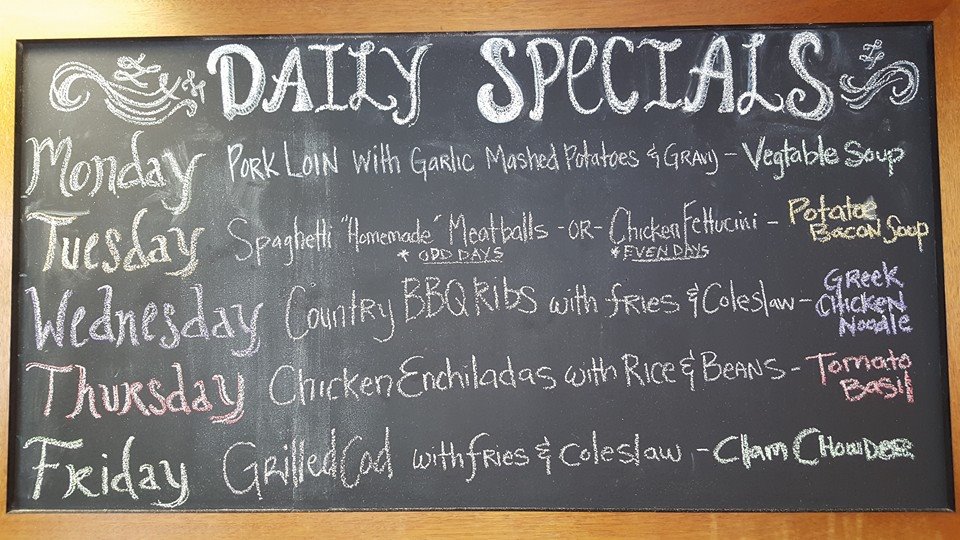 DAILY SPECIALS
Monday PORK LOIN with GARLIC MASHED POTATOES & GRAVY - VEGTABLE SOUP
Tuesday Spaghetti "Homemade" Meatballs -OR- Chicken Fettucini - POTATOE
* ODD DAYS *EVEN DAYS BACON SOUP
Wednesday Country BBQ RIBS with fries & Coleslaw - GREEK
CHICKEN
NOODLE
Thursday Chicken Enchiladas with RICE & BEANS - TOMATO
BASIL
Friday Grilled Cod with fries & Coleslaw - Clam CHOWDER